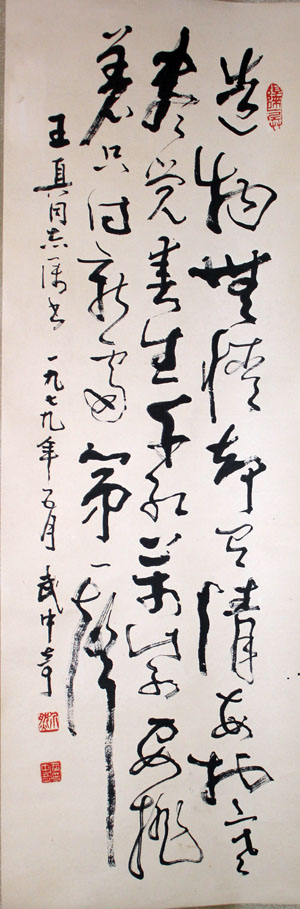 造物無情却有情每於寒
盡觉春生千红萬紫安排
着只待新雷第一聲
王真同志属书 一九七九年五月 武中奇